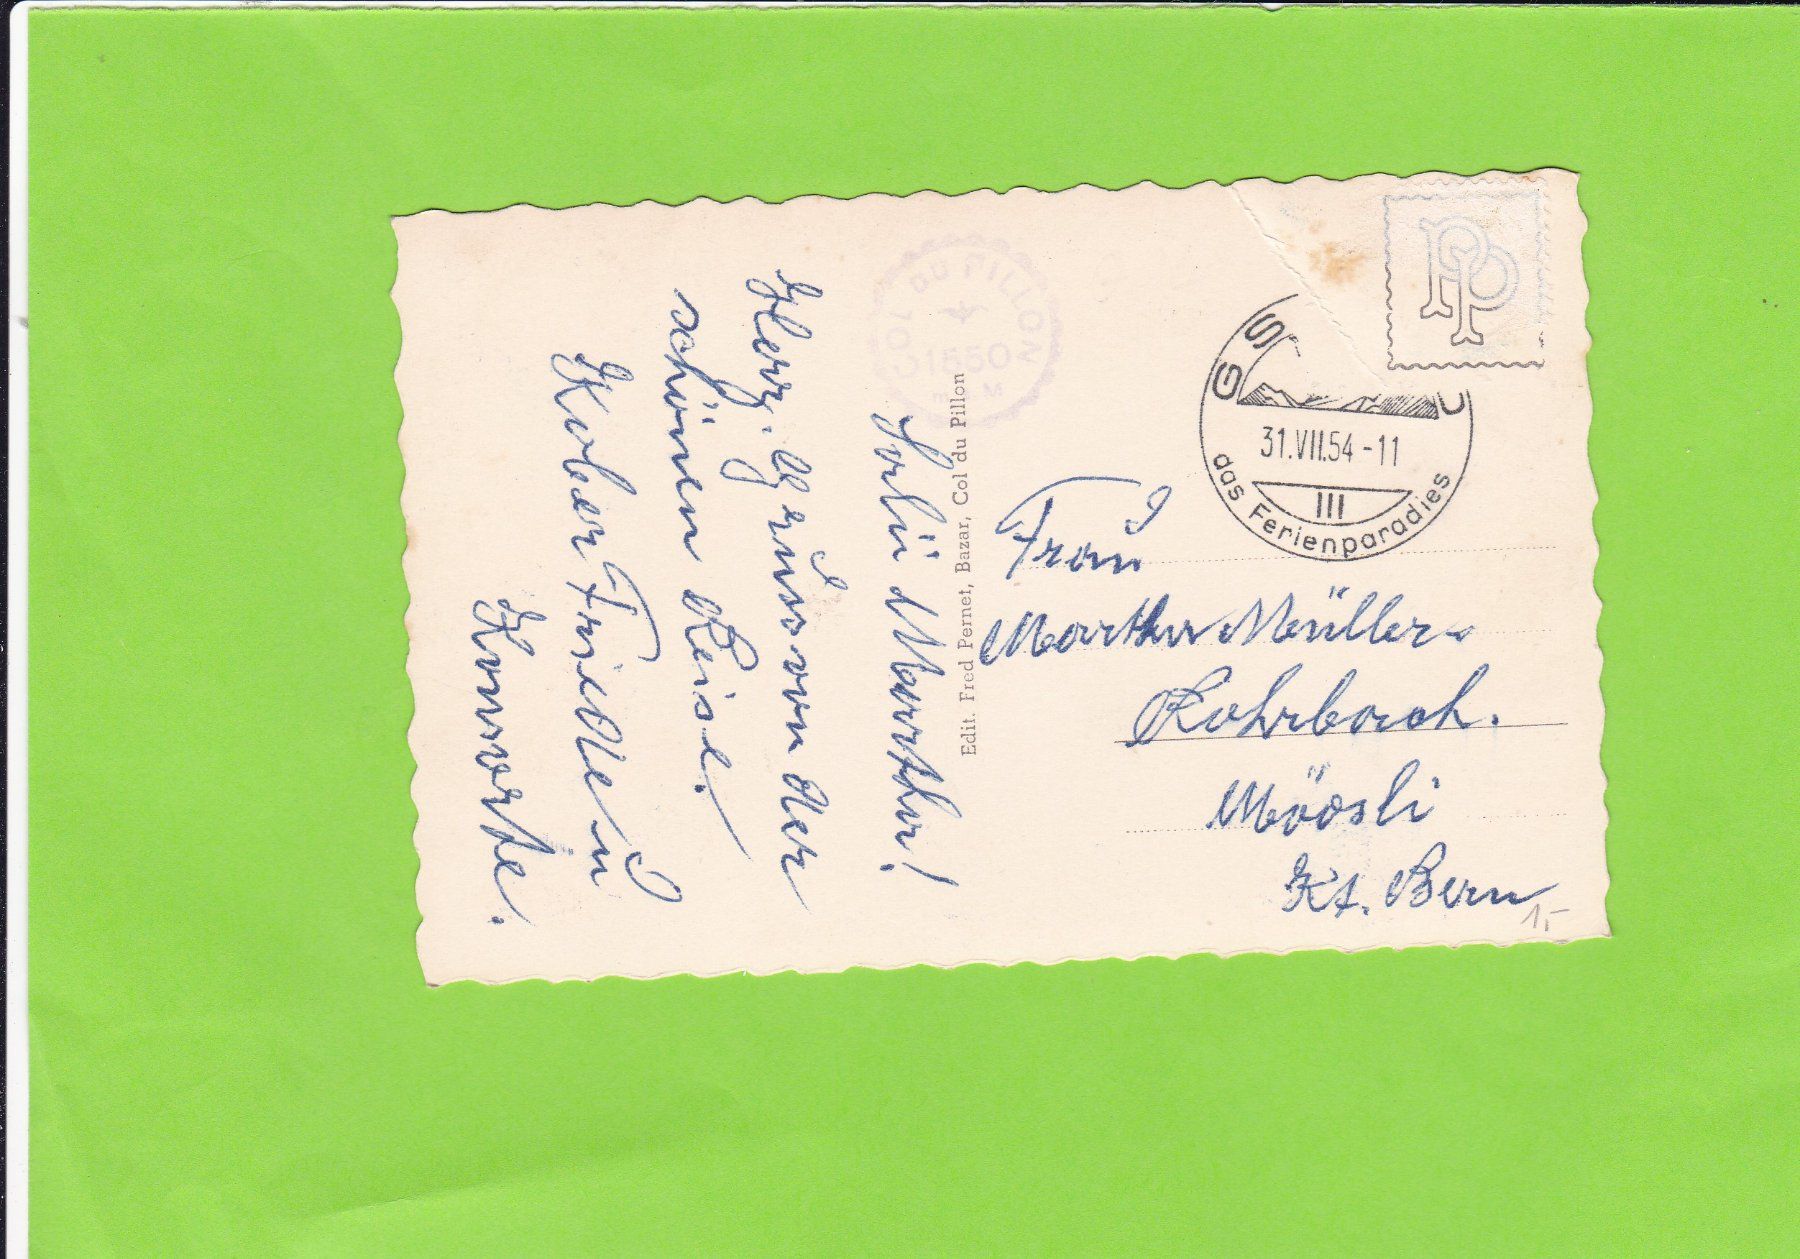 Salü Martha!
Herzl. Gruss von der
schönen Reise.
Kober Frieda u
Konsorte.
COL DU PILLON
1550
M
Edit. Fred Pernet, Bazar, Col du Pillon
PP
GS
31.VII.54-11
III
das Ferienparadies
Frau
Martha Müller
Rohrbach.
Möösli
Kt. Bern
1.-